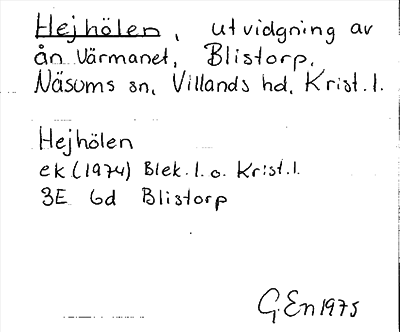 Hejhölen, utvidgning av
ån Värmanet, Blistorp,
Näsums sn, Villands hd, Krist.l.
Hejhölen
ek (1974) Blek.l.o. Krist.l.
3E 6d Blistorp
G.En 1975